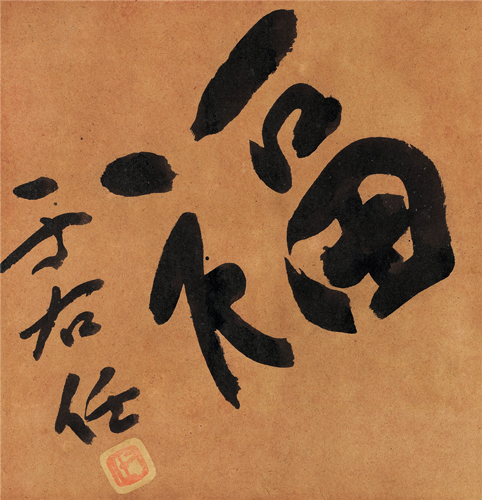 福
于右任